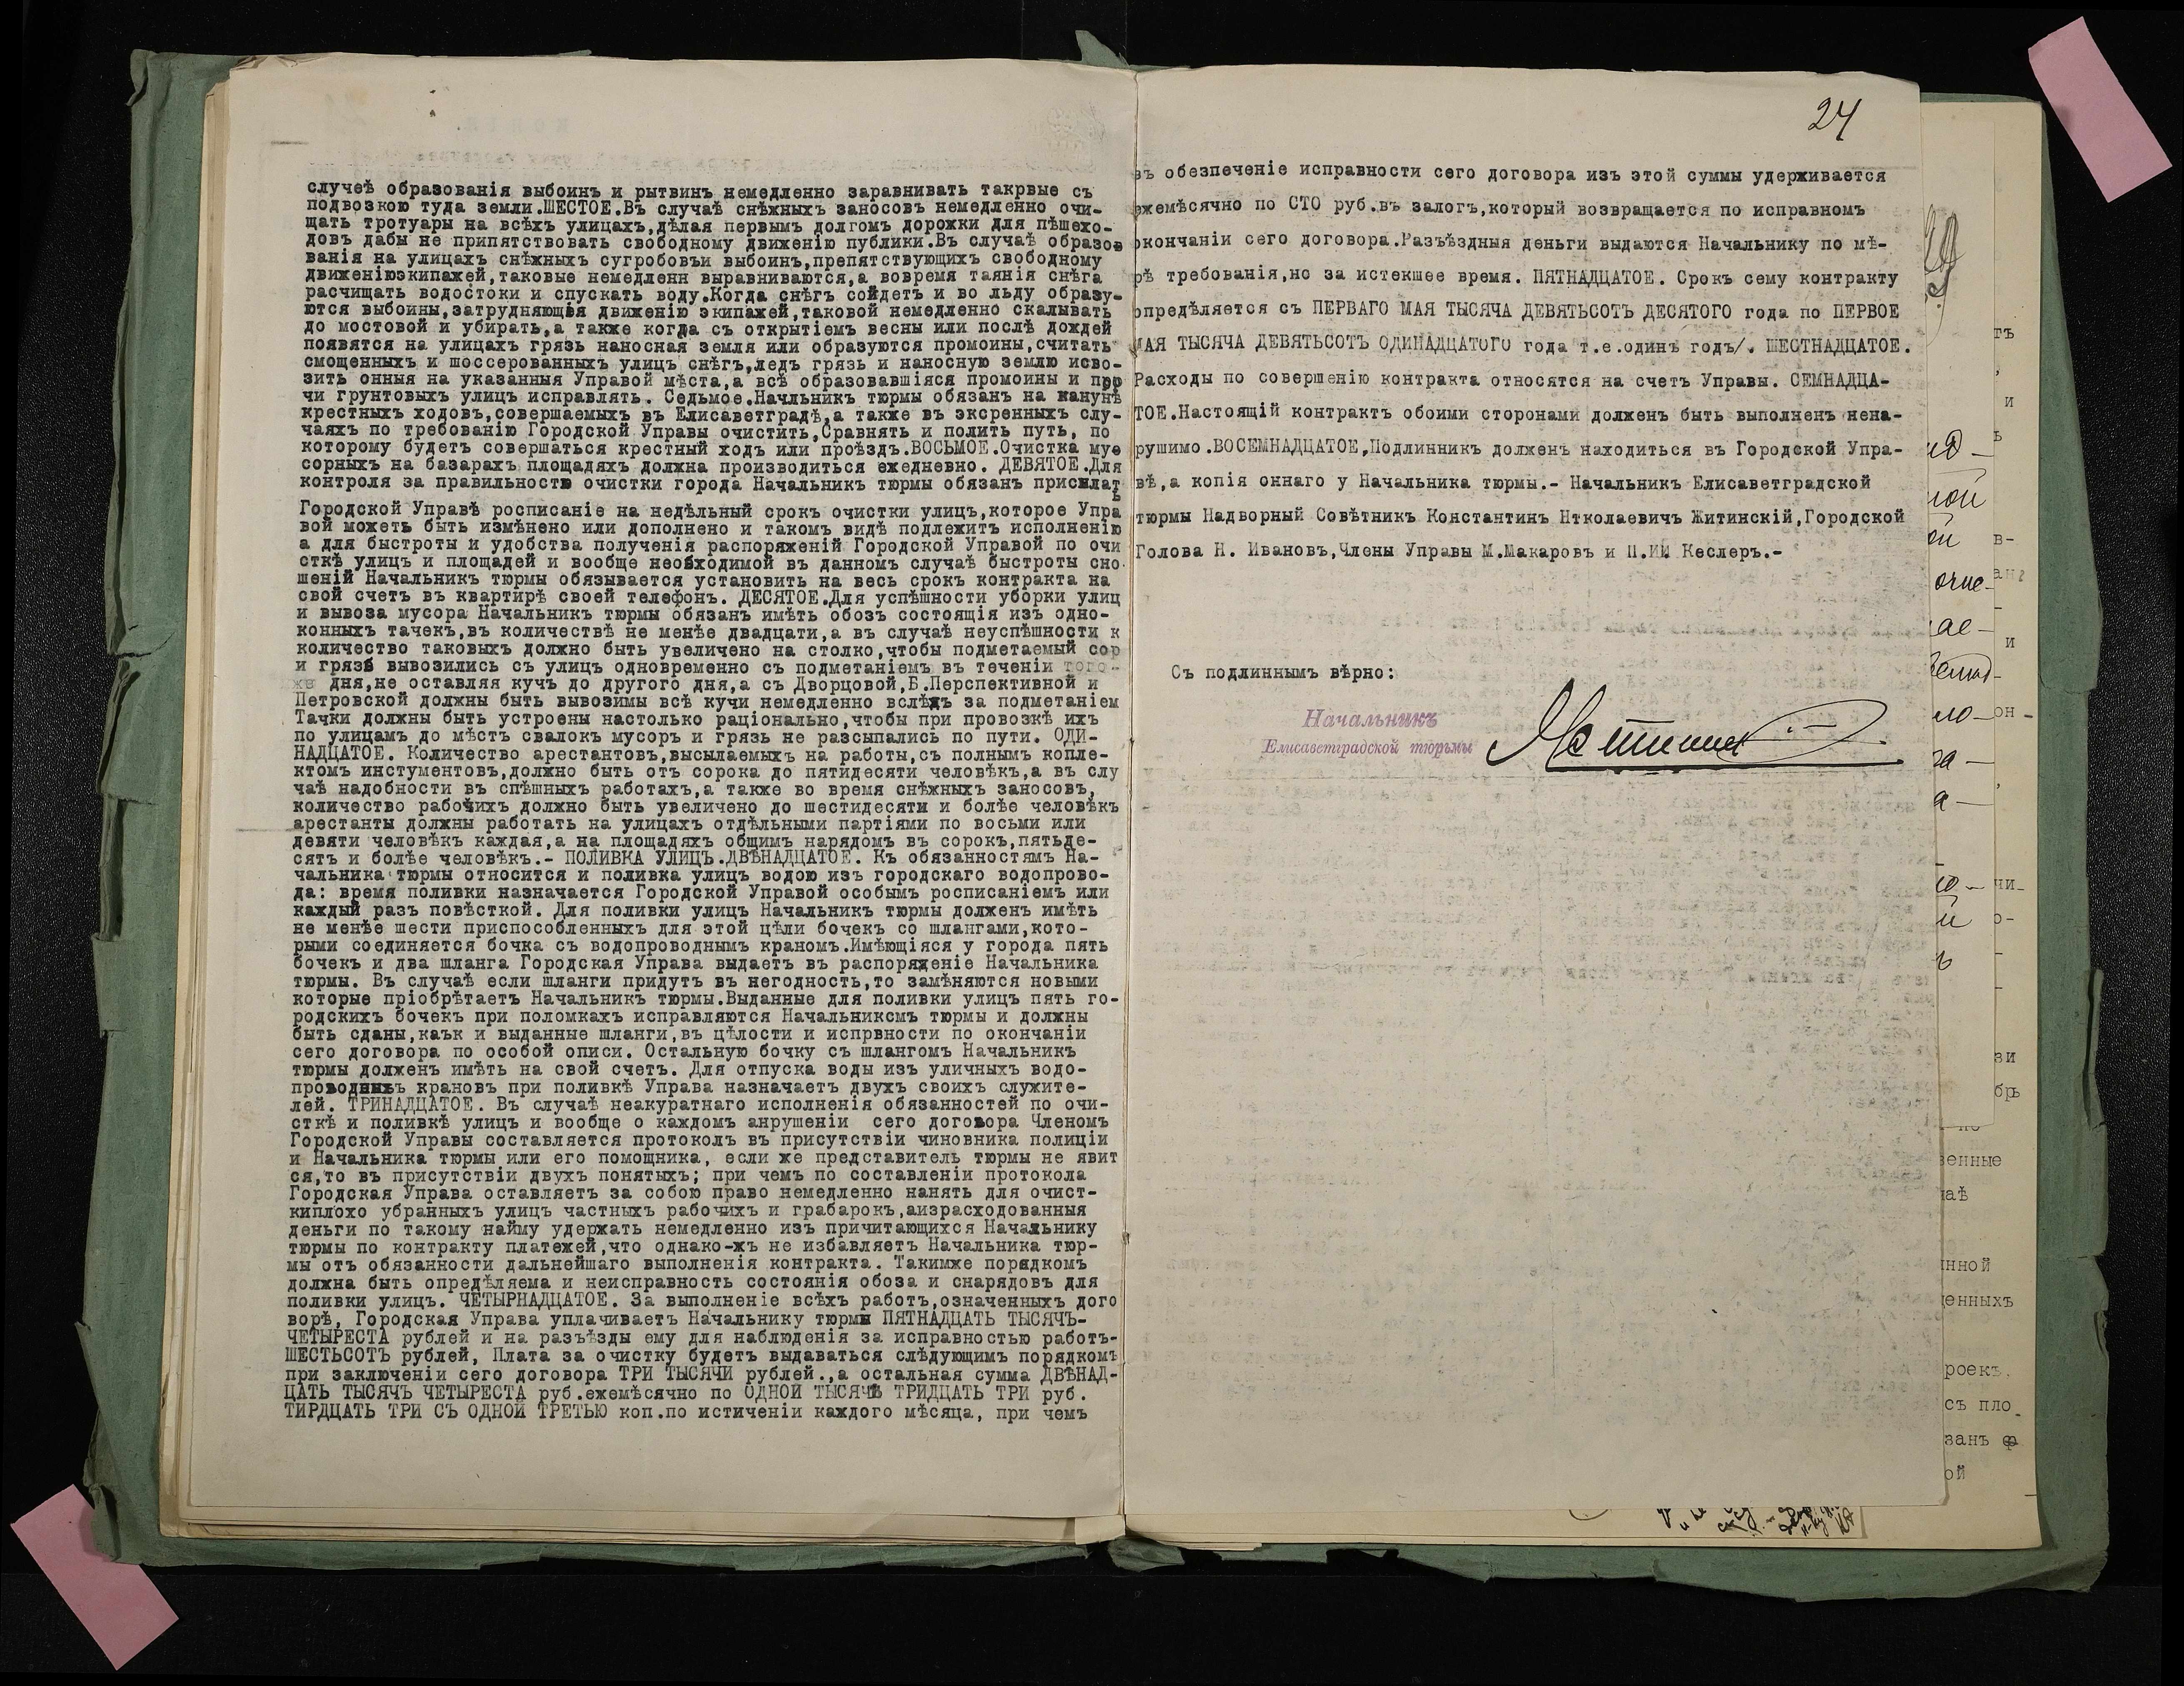 случеѣ образованія выбоинъ и рытвинъ немедленно заравнивать такрвые съ
подвозкою туда земли.ШЕСТОЕ.Въ случаѣ снѣжныхъ заносовъ немедленно очи-
щать тротуары на всѣхъ улицахъ,дѣлая первымъ долгомъ дорожки для пѣшехо-
довъ дабы не припятствовать свободному движенію публики.Въ случаѣ образов
ванія на улицахъ снѣжныхъ сугробовъи выбоинъ,препятствующихъ свободному
движеніюэкипажей,таковые немедленн выравниваются,а вовремя таянія снѣга
расчищать водостоки и спускать воду.Когда снѣгъ сойдетъ и во льду образу-
ются выбоины,затрудняющія движенію экипажей,таковой немедленно скалывать
до мостовой и убирать,а также когда съ открытіемъ весны или послѣ дождей
появятся на улицахъ грязь наносная земля или образуются промоины,считать
смощенныхъ и шоссерованныхъ улицъ снѣгъ,ледъ грязь и наносную землю исво-
зить онныя на указанныя Управой мѣста,а всѣ образовавшіяся промоины и про
чи грунтовыхъ улицъ исправлять. Седьмое.Начльникъ тюрмы обязанъ на канунѣ
крестныхъ ходовъ,совершаемыхъ въ Елисаветградѣ,а также въ эксренныхъ слу-
чаяхъ по требованію Городской Управы очистить,Сравнять и полить путь, по
которому будетъ совершаться крестный ходъ или проѣздъ.ВОСЬМОЕ.Очистка мус
сорныхъ на базарахъ площадяхъ должна производиться ежедневно. ДЕВЯТОЕ.Для
контроля за правильностю очистки города Начальникъ тюрмы обязанъ присылат
ь
Городской Управѣ росписаніе на недѣльный срокъ очистки улицъ,которое Упра
вой можетъ быть измѣнено или дополнено и такомъ видѣ подлежитъ исполненію
а для быстроты и удобства полученія распоряженій Городской Управой по очи
сткѣ улицъ и площадей и вообще необходимой въ данномъ случаѣ быстроты сно-
шеній Начальникъ тюрмы обязывается установить на весь срокъ контракта на
свой счетъ въ квартирѣ своей телефонъ. ДЕСЯТОЕ.Для успѣшности уборки улиц
и вывоза мусора Начальникъ тюрмы обязанъ имѣть обозъ состоящія изъ одно-
конныхъ тачекъ,въ количествѣ не менѣе двадцати,а въ случаѣ неуспѣшности к
количество таковыхъ должно быть увеличено на столко,чтобы подметаемый сор
и грязь вывозились съ улицъ одновременно съ подметаніемъ въ теченіи того-
же дня,не оставляя кучъ до другого дня,а съ Дворцовой,Б.Перспективной и
Петровской должны быть вывозимы всѣ кучи немедленно вслѣдъ за подметаніем
Тачки должны быть устроены настолько раціонально,чтобы при провозкѣ ихъ
по улицамъ до мѣстъ свалокъ мусоръ и грязь не разсыпались по пути. ОДИ-
НАДЦАТОЕ. Количество арестантовъ,высылаемыхъ на работы,съ полнымъ копле-
ктомъ инстументовъ,должно быть отъ сорока до пятидесяти человѣкъ,а въ слу
чаѣ надобности въ спѣшныхъ работахъ,а также во время снѣжныхъ заносовъ,
количество рабочихъ должно быть увеличено до шестидесяти и болѣе человѣкъ
арестанты должны работать на улицахъ отдѣльными партіями по восьми или
девяти человѣкъ каждая,а на площадяхъ общимъ нарядомъ въ сорокъ,пятьде-
сятъ и болѣе человѣкъ.- ПОЛИВКА УЛИЦЪ.ДВѢНАДЦАТОЕ. Къ обязанностямъ На-
чальника тюрмы относится и поливка улицъ водою изъ городскаго водопрово-
да: время поливки назначается Городской Управой особымъ росписаніемъ или
каждый разъ повѣсткой. Для поливки улицъ Начальникъ тюрмы долженъ имѣть
не менѣе шести приспособленныхъ для этой цѣли бочекъ со шлангами,кото-
рыми соединяется бочка съ водопроводнымъ краномъ.Имѣющіяся у города пять
бочекъ и два шланга Городская Управа выдаетъ въ распоряденіе Начальника
тюрмы. Въ случаѣ если шланги придутъ въ негодность,то замѣняются новыми
которые пріобрѣтаетъ Начальникъ тюрмы.Выданные для поливки улицъ пять го-
родскихъ бочекъ при поломкахъ исправляются Начальниксмъ тюрмы и должны
быть сданы,каък и выданные шланги,въ цѣлости и испрвности по окончаніи
сего договора по особой описи. Остальную бочку съ шлангомъ Начальникъ
тюрмы долженъ имѣть на свой счетъ. Для отпуска воды изъ уличныхъ водо-
проводныхъ крановъ при поливкѣ Управа назначаетъ двухъ своихъ служите-
лей. ТРИНАДЦАТОЕ. Въ случаѣ неакуратнаго исполненія обязанностей по очи-
сткѣ и поливкѣ улицъ и вообще о каждомъ анрушеніи сего договора Членомъ
Городской Управы составляется протоколъ въ присутствіи чиновника полиціи
и Начальника тюрмы или его помощника, если же представитель тюрмы не явит
ся,то въ присутствіи двухъ понятыхъ; при чемъ по составленіи протокола
Городская Управа оставляетъ за собою право немедленно нанять для очист-
киплохо убранныхъ улицъ частныхъ рабочихъ и грабарокъ,аизрасходованныя
деньги по такому найму удержать немедленно изъ причитающихся Начальнику
тюрмы по контракту платежей,что однако-жъ не избавляетъ Начальника тюр-
мы отъ обязанности дальнейшаго выполненія контракта. Такимже порядкомъ
должна быть опредѣляема и неисправность состоянія обоза и снарядовъ для
поливки улицъ. ЧЕТЫРНАДЦАТОЕ. За выполненіе всѣхъ работъ,означенныхъ дого
ворѣ, Городская Управа уплачиваетъ Начальнику тюрмы ПЯТНАДЦАТЬ ТЫСЯЧЪ-
ЧЕТЫРЕСТА рублей и на разъѣзды ему для наблюденія за исправностью работъ-
ШЕСТЬСОТЪ рублей, Плата за очистку будетъ выдаваться слѣдующимъ порядкомъ
при заключеніи сего договора ТРИ ТЫСЯЧИ рублей.,а остальная сумма ДВѢНАД-
ЦАТЬ ТЫСЯЧЪ ЧЕТЫРЕСТА руб.ежемѣсячно по ОДНОЙ ТЫСЯЧѢ ТРИДЦАТЬ ТРИ руб.
ТИРДЦАТЬ ТРИ СЪ ОДНОЙ ТРЕТЬЮ коп.по истиченіи каждого мѣсяца, при чемъ
24
въ обезпеченіе исправности сего договора изъ этой суммы удерживается
ежемѣсячно по СТО руб.въ залогъ,который возвращается по исправномъ
окончаніи сего договора.Разъѣздныя деньги выдаются Начальнику по мѣ-
рѣ требованія,но за истекшее время. ПЯТНАДЦАТОЕ. Срокъ сему контракту
опредѣляется съ ПЕРВАГО МАЯ ТЫСЯЧА ДЕВЯТЬСОТЪ ДЕСЯТОГО года по ПЕРВОЕ
МАЯ ТЫСЯЧА ДЕВЯТЬСОТЪ ОДИНАДЦАТОГО года т.е.одинъ годъ/. ШЕСТНАДЦАТОЕ.
Расходы по совершенію контракта относятся на счетъ Управы. СЕМНАДЦА-
ТОЕ.Настоящій контрактъ обоими сторонами долженъ быть выполненъ нена-
рушимо.ВОСЕМНАДЦАТОЕ,Подлинникъ долженъ находиться въ Городской Упра-
вѣ,а копія оннаго у Начальника тюрмы.- Начальникъ Елисаветградской
тюрмы Надворный Совѣтникъ Константинъ Нтколаевичъ Житинскій,Городской
Голова Н. Ивановъ,Члены Управы М.Макаровъ и П.ИИ Кеслеръ.-
Съ подлиннымъ вѣрно:
Начальникъ
Елисаветградской тюрьмы